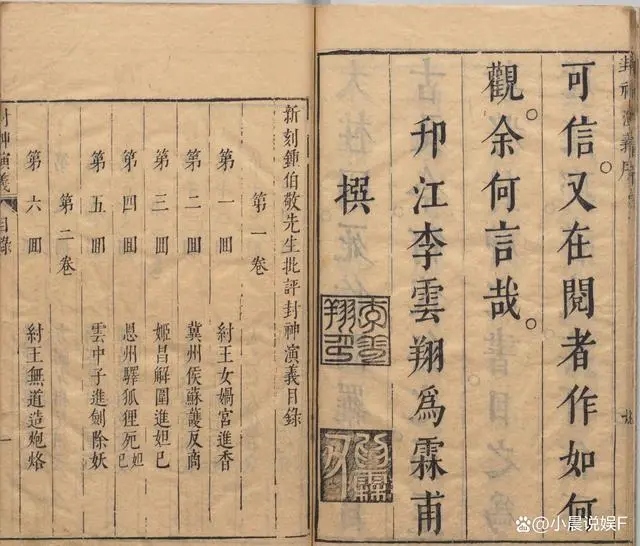 封神演義序
可信又在閱者作如何
觀。余何言哉。
邗江李雲翔爲霖甫
撰
李雲翔印
新刻鍾伯敬先生批評封神演義目錄
第一卷
第一回 紂王女媧宮進香
第二回 冀州侯蘇護反商
第三回 姬昌解圍進妲己
第四回 恩州驛狐狸死妲己
第五回 雲中子進劍除妖
第二卷
第六回 紂王無道造炮烙
封神演義 目錄 一
@小晨说娱F